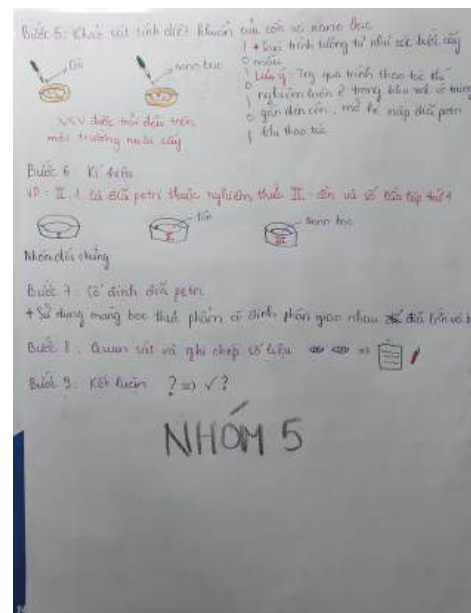 Bước 5: Khảo sát tính diệt khuẩn của cồn và nano bạc
Cồn
nano bạc
VSV được trải đều trên
môi trường nuôi cấy
+ Quy trình tương tự như các bước cấy
mẫu
Lưu ý: Trg quá trình thao tác thí
nghiệm luôn ở trong khu vực vô trùng
gần đèn cồn, mở hé nắp đĩa petri
khi thao tác
Bước 6: Kí hiệu
VD: II.1 là đĩa petri thuộc nghiệm thức II cồn và số lần lặp thứ 1
I
cồn
II
nano bạc
III
Nhóm đối chứng
Bước 7: Cố định đĩa petri
+ Sử dụng màng bọc thực phẩm cố định phần giao nhau đĩa trên và
Bước 8: Quan sát và ghi chép số liệu =>
Bước 9: Kết luận ? => √ ?
NHÓM 5